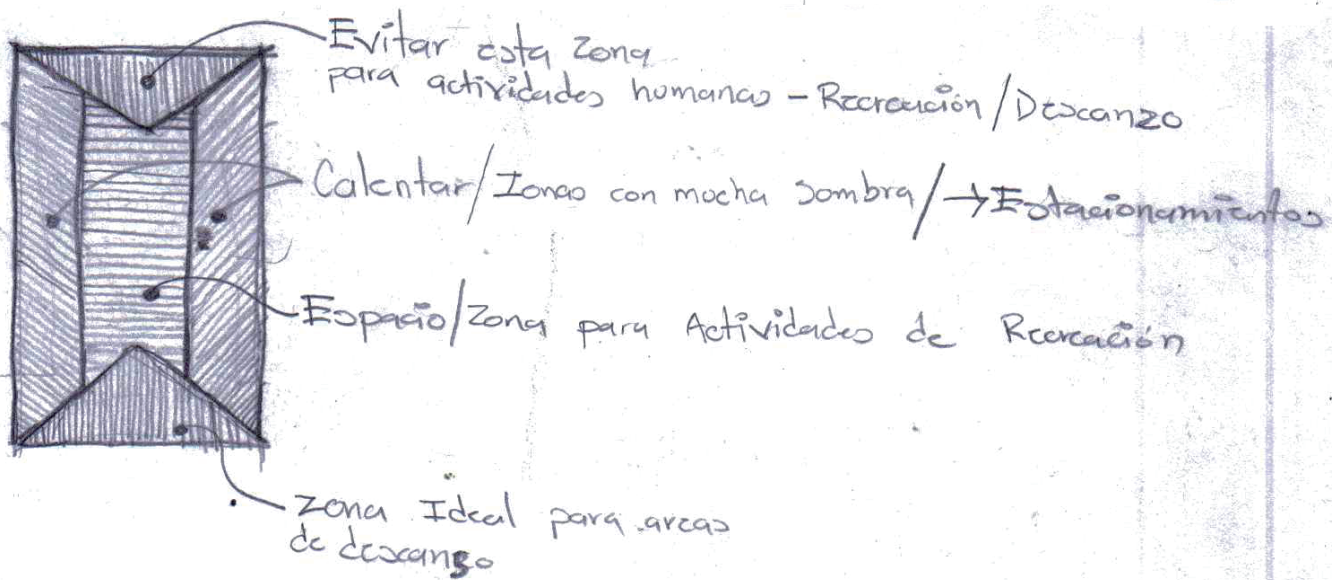 Evitar esta Zona
para actividades humanas - Recreación/Descanzo
Calentar/Zonas con mucha sombra/→Estacionamientos
Espacio/Zona para Actividades de Recreación
Zona Ideal para areas
de descanso